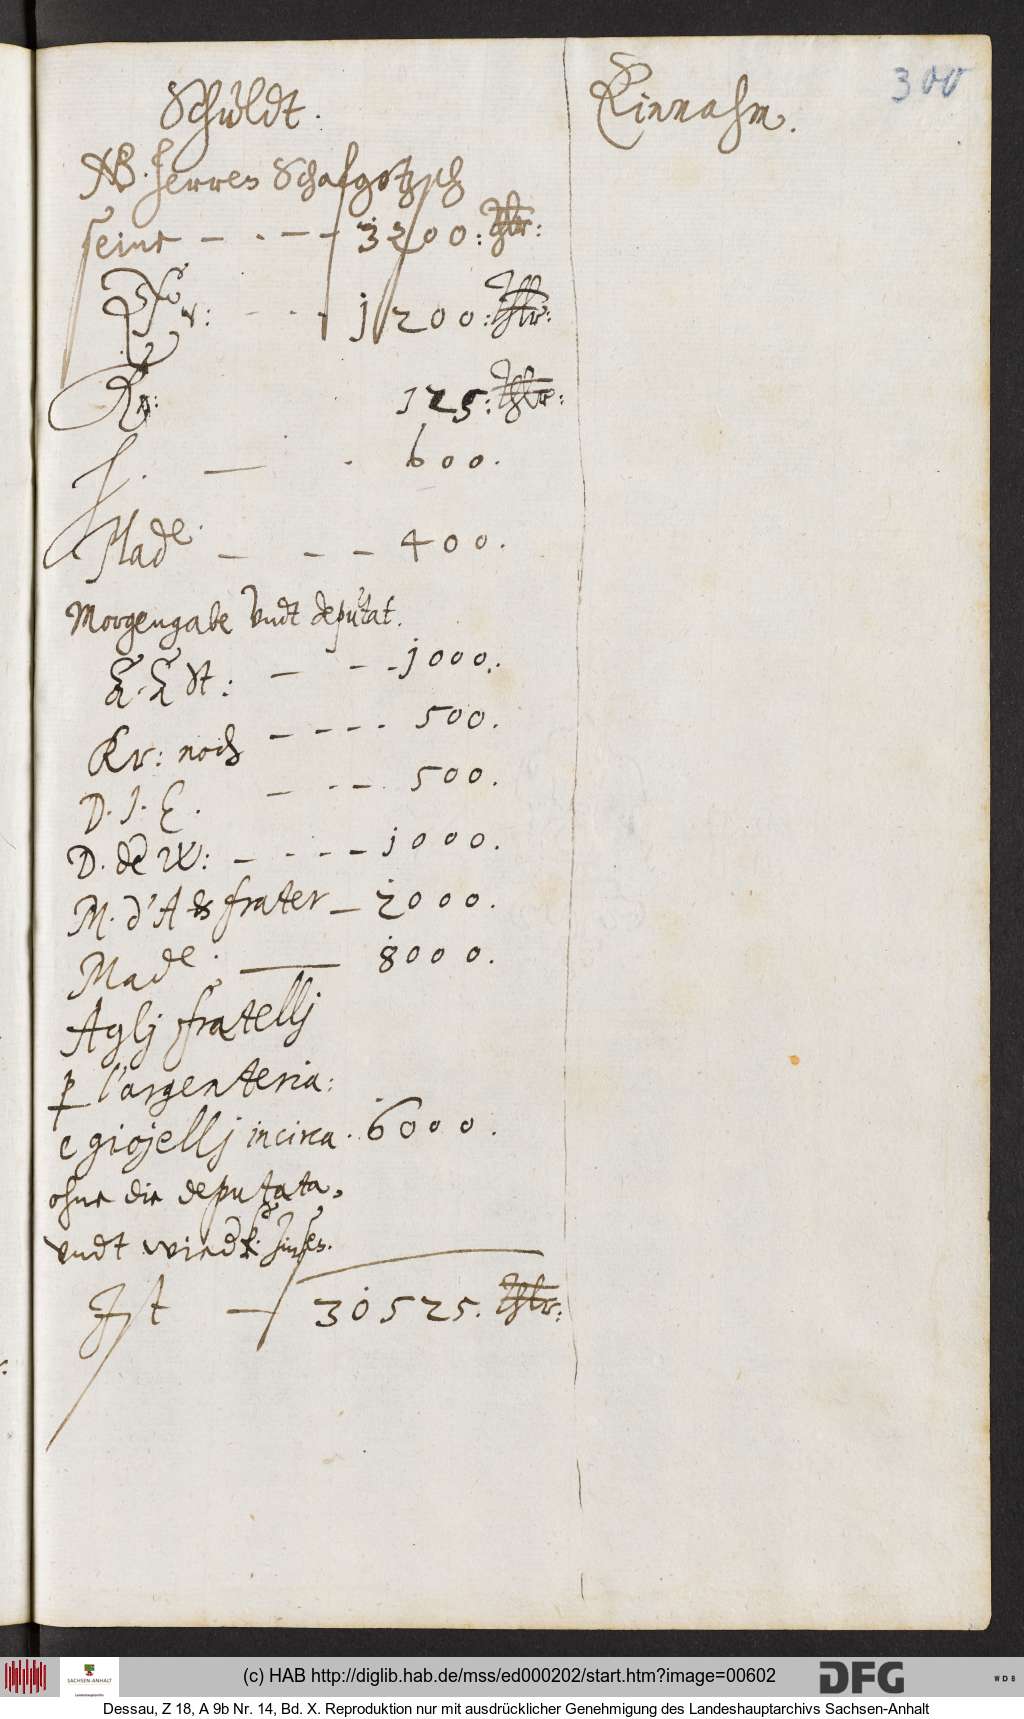 300
Schuldt.
Einnahm.
NB. Herren Schafgotzsch
seine — . — — 3200: Thlr:
1200: Thlr:
Kr: 125: Thlr:
J. — . 600.
Made. — — — 400.
Morgengabe vndt deputat.
St: — — - 1000.
Kr: noch — — — - 500.
D. J. E. — - — . 500.
D. de W: — - - — 1000.
M. d'A & frater — 2000.
Made. — 8000.
Aglj fratellj
p l'argenteria:
e giojellj incirca. 6000.
ohne die deputata,
vndt Zinses.
Ist — 30525. Thlr:
SACHSEN-ANHALT
Landeshauptarchiv
(c) HAB http://diglib.hab.de/mss/ed000202/start.htm?image=00602
DFG
WDB
Dessau, Z 18, A 9b Nr. 14, Bd. X. Reproduktion nur mit ausdrücklicher Genehmigung des Landeshauptarchivs Sachsen-Anhalt